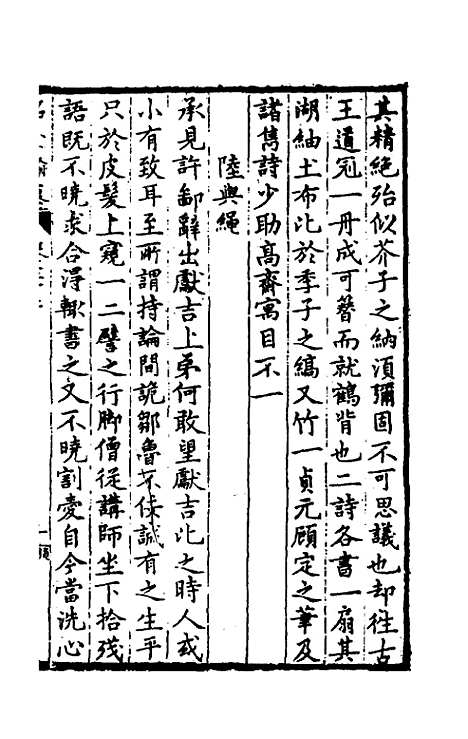 其精絕殆似芥子之納須彌固不可思議也却往古
王道冠一冊成可簪而就鶴背也二詩各書一扇其
湖紬土布比於季子之縞又竹一貞元顧定之筆及
諸雋詩少助高齋寓目不一
陸與繩
承見許鄙辭出獻吉上弟何敢望獻吉比之時人或
小有致耳至所謂持論間詭鄒魯不佞誠有之生平
只於皮髮上窺一二譬之行脚僧從講師坐下拾殘
語既不曉求合得輒書之又不曉割愛自今當洗心